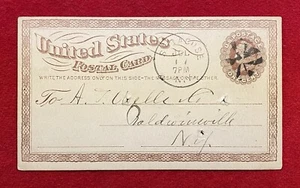 United States
POSTAL CARD
WRITE THE ADDRESS ONLY ON THIS SIDE—THE MESSAGE ON THE OTHER
7PM
To A. T.
Baldwinsville
N.Y.